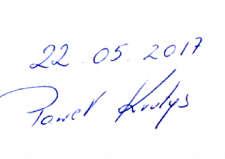 22.05.2017
Paweł